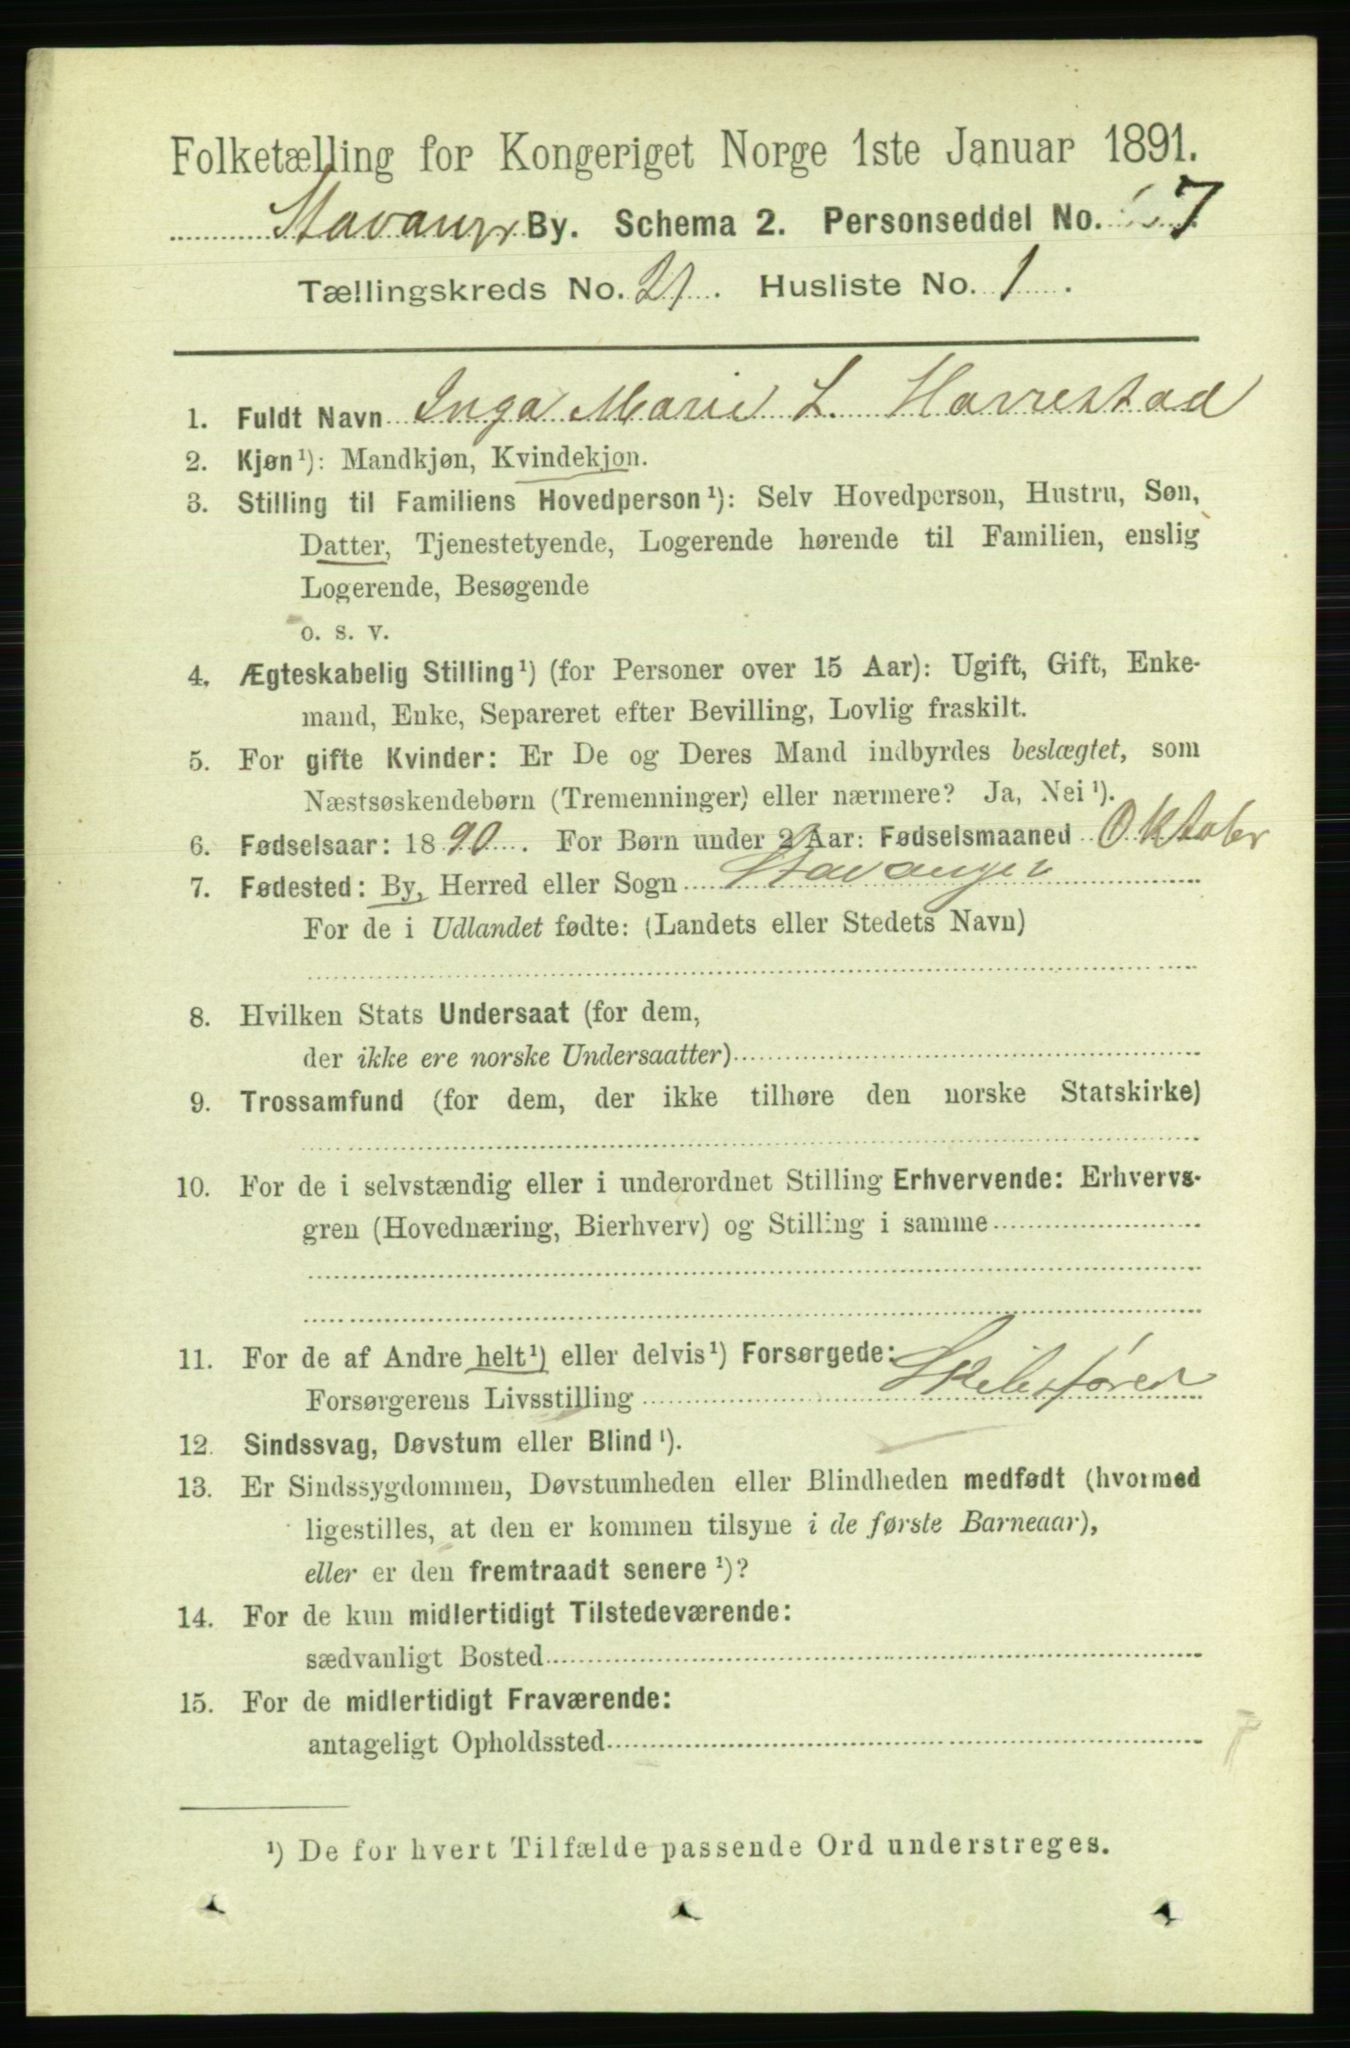 Folketælling for Kongeriget Norge 1ste Januar 1891.
Stavanger By. Schema 2. Personseddel No. 7
Tællingskreds No. 21. Husliste No. 1.
1. Fuldt Navn Inga Marie L. Havrestad
2. Kjøn¹): Mandkjøn, Kvindekjøn.
3. Stilling til Familiens Hovedperson¹): Selv Hovedperson, Hustru, Søn,
Datter, Tjenestetyende, Logerende hørende til Familien, enslig
Logerende, Besøgende
o. s. v.
4. Ægteskabelig Stilling¹) (for Personer over 15 Aar): Ugift, Gift, Enke-
mand, Enke, Separeret efter Bevilling, Lovlig fraskilt.
5. For gifte Kvinder: Er De og Deres Mand indbyrdes beslægtet, som
Næstsøskendebørn (Tremenninger) eller nærmere? Ja, Nei¹).
6. Fødselsaar: 1890. For Børn under 2 Aar: Fødselsmaaned Oktober
7. Fødested: By, Herred eller Sogn Stavanger
For de i Udlandet fødte: (Landets eller Stedets Navn)
8. Hvilken Stats Undersaat (for dem,
der ikke ere norske Undersaatter)
9. Trossamfund (for dem, der ikke tilhøre den norske Statskirke)
10. For de i selvstændig eller i underordnet Stilling Erhvervende: Erhvervs-
gren (Hovednæring, Bierhverv) og Stilling i samme
11. For de af Andre helt¹) eller delvis¹) Forsørgede:
Forsørgerens Livsstilling Skibsfører
12. Sindssvag, Døvstum eller Blind¹).
13. Er Sindssygdommen, Døvstumheden eller Blindheden medfødt (hvormed
ligestilles, at den er kommen tilsyne i de første Barneaar),
eller er den fremtraadt senere¹)?
14. For de kun midlertidigt Tilstedeværende:
sædvanligt Bosted
15. For de midlertidigt Fraværende:
antageligt Opholdssted
7
¹) De for hvert Tilfælde passende Ord understreges.